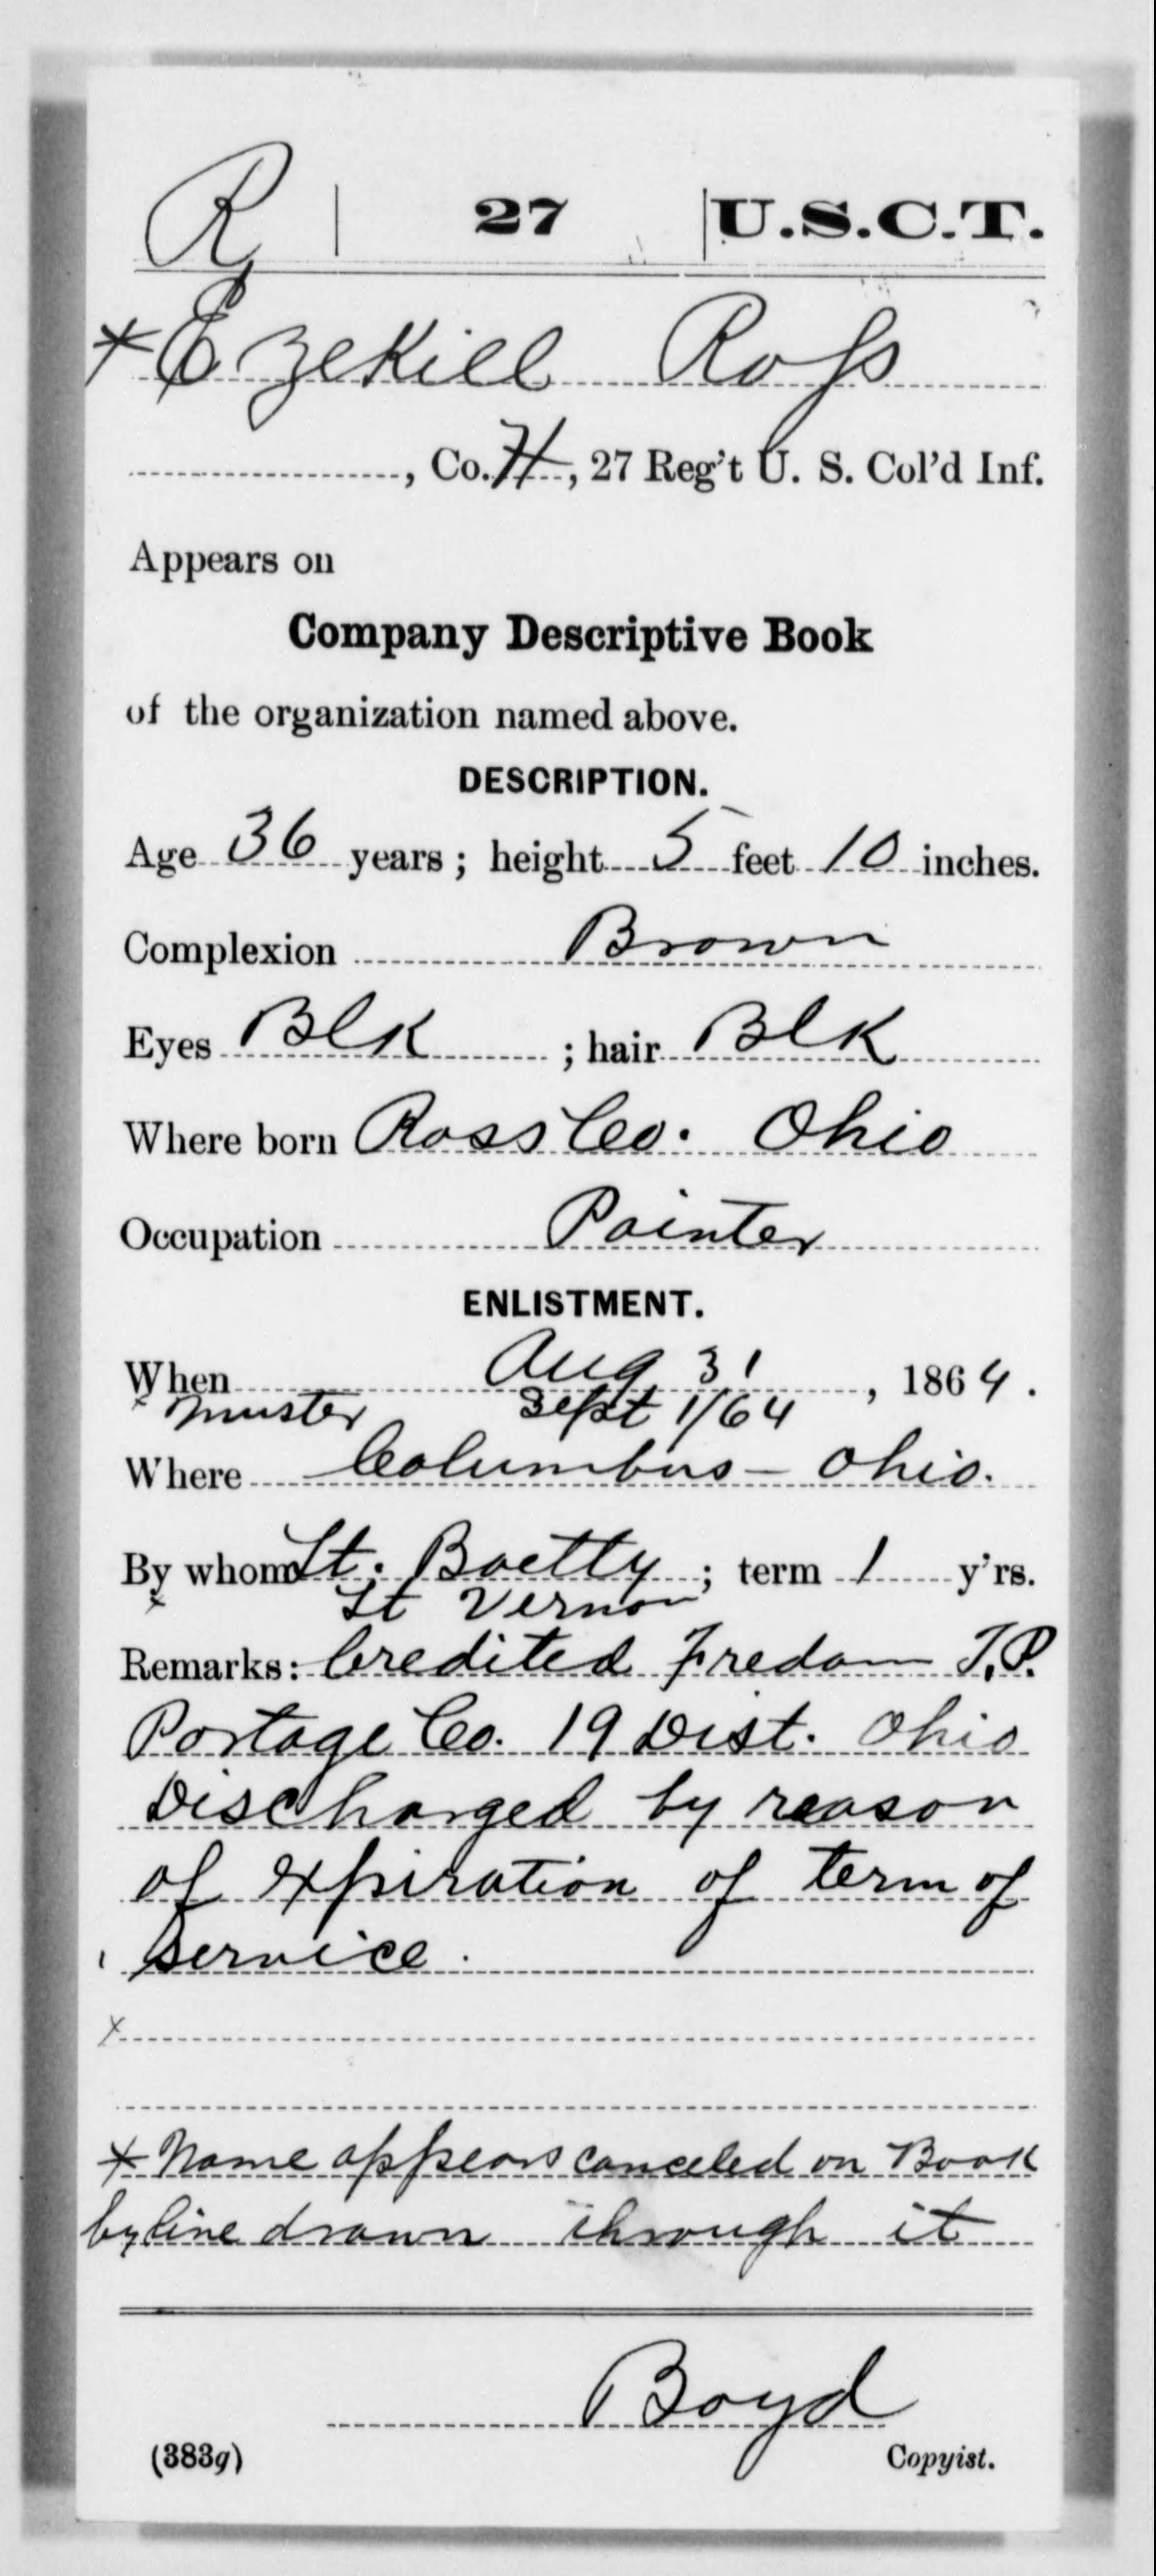 R | 27 | U.S.C.T.
* Ezekiel Ross
, Co. H, 27 Reg't U. S. Col'd Inf.
Appears on
Company Descriptive Book
of the organization named above.
DESCRIPTION.
Age 36 years; height 5 feet 10 inches.
Complexion Brown
Eyes Blk; hair Blk
Where born Ross Co. Ohio
Occupation Painter
ENLISTMENT.
When Aug 31, 1864.
x muster Sept 1/64
Where Columbus - Ohio.
By whom Lt. Baetty; term 1 y'rs.
x Lt Vernon
Remarks: Credited Fredom T.P.
Portage Co. 19 Dist. Ohio
Discharged by reason
of expiration of term of
service.
x
* Name appears canceled on Book
by line drawn through it
Boyd
(383g) Copyist.